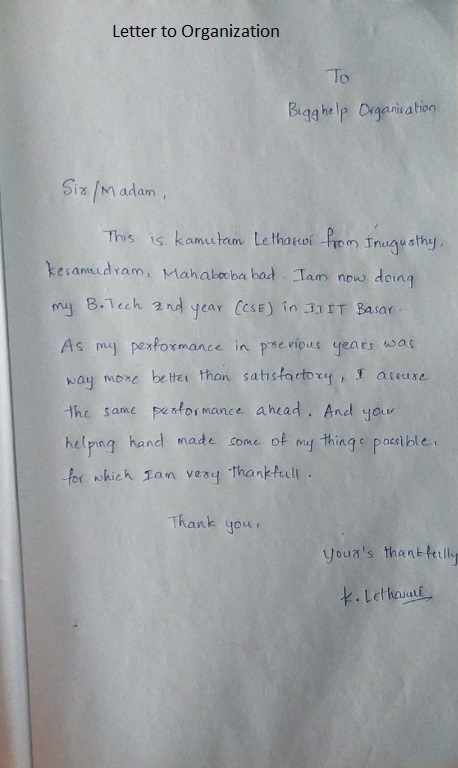 Letter to Organization
To
Bigghelp Organisation
Sir/Madam,
This is kamutam Letharwi from Inugurthy,
kesamudram, Mahaboobabad. Iam now doing
my B.Tech 2nd year (CSE) in IIIT Basar.
As my performance in previous years was
way more better than satisfactory, I assure
the same performance ahead. And your
helping hand made some of my things possible,
for which Iam very thankfull.
Thank you,
Your's thankfully
K.